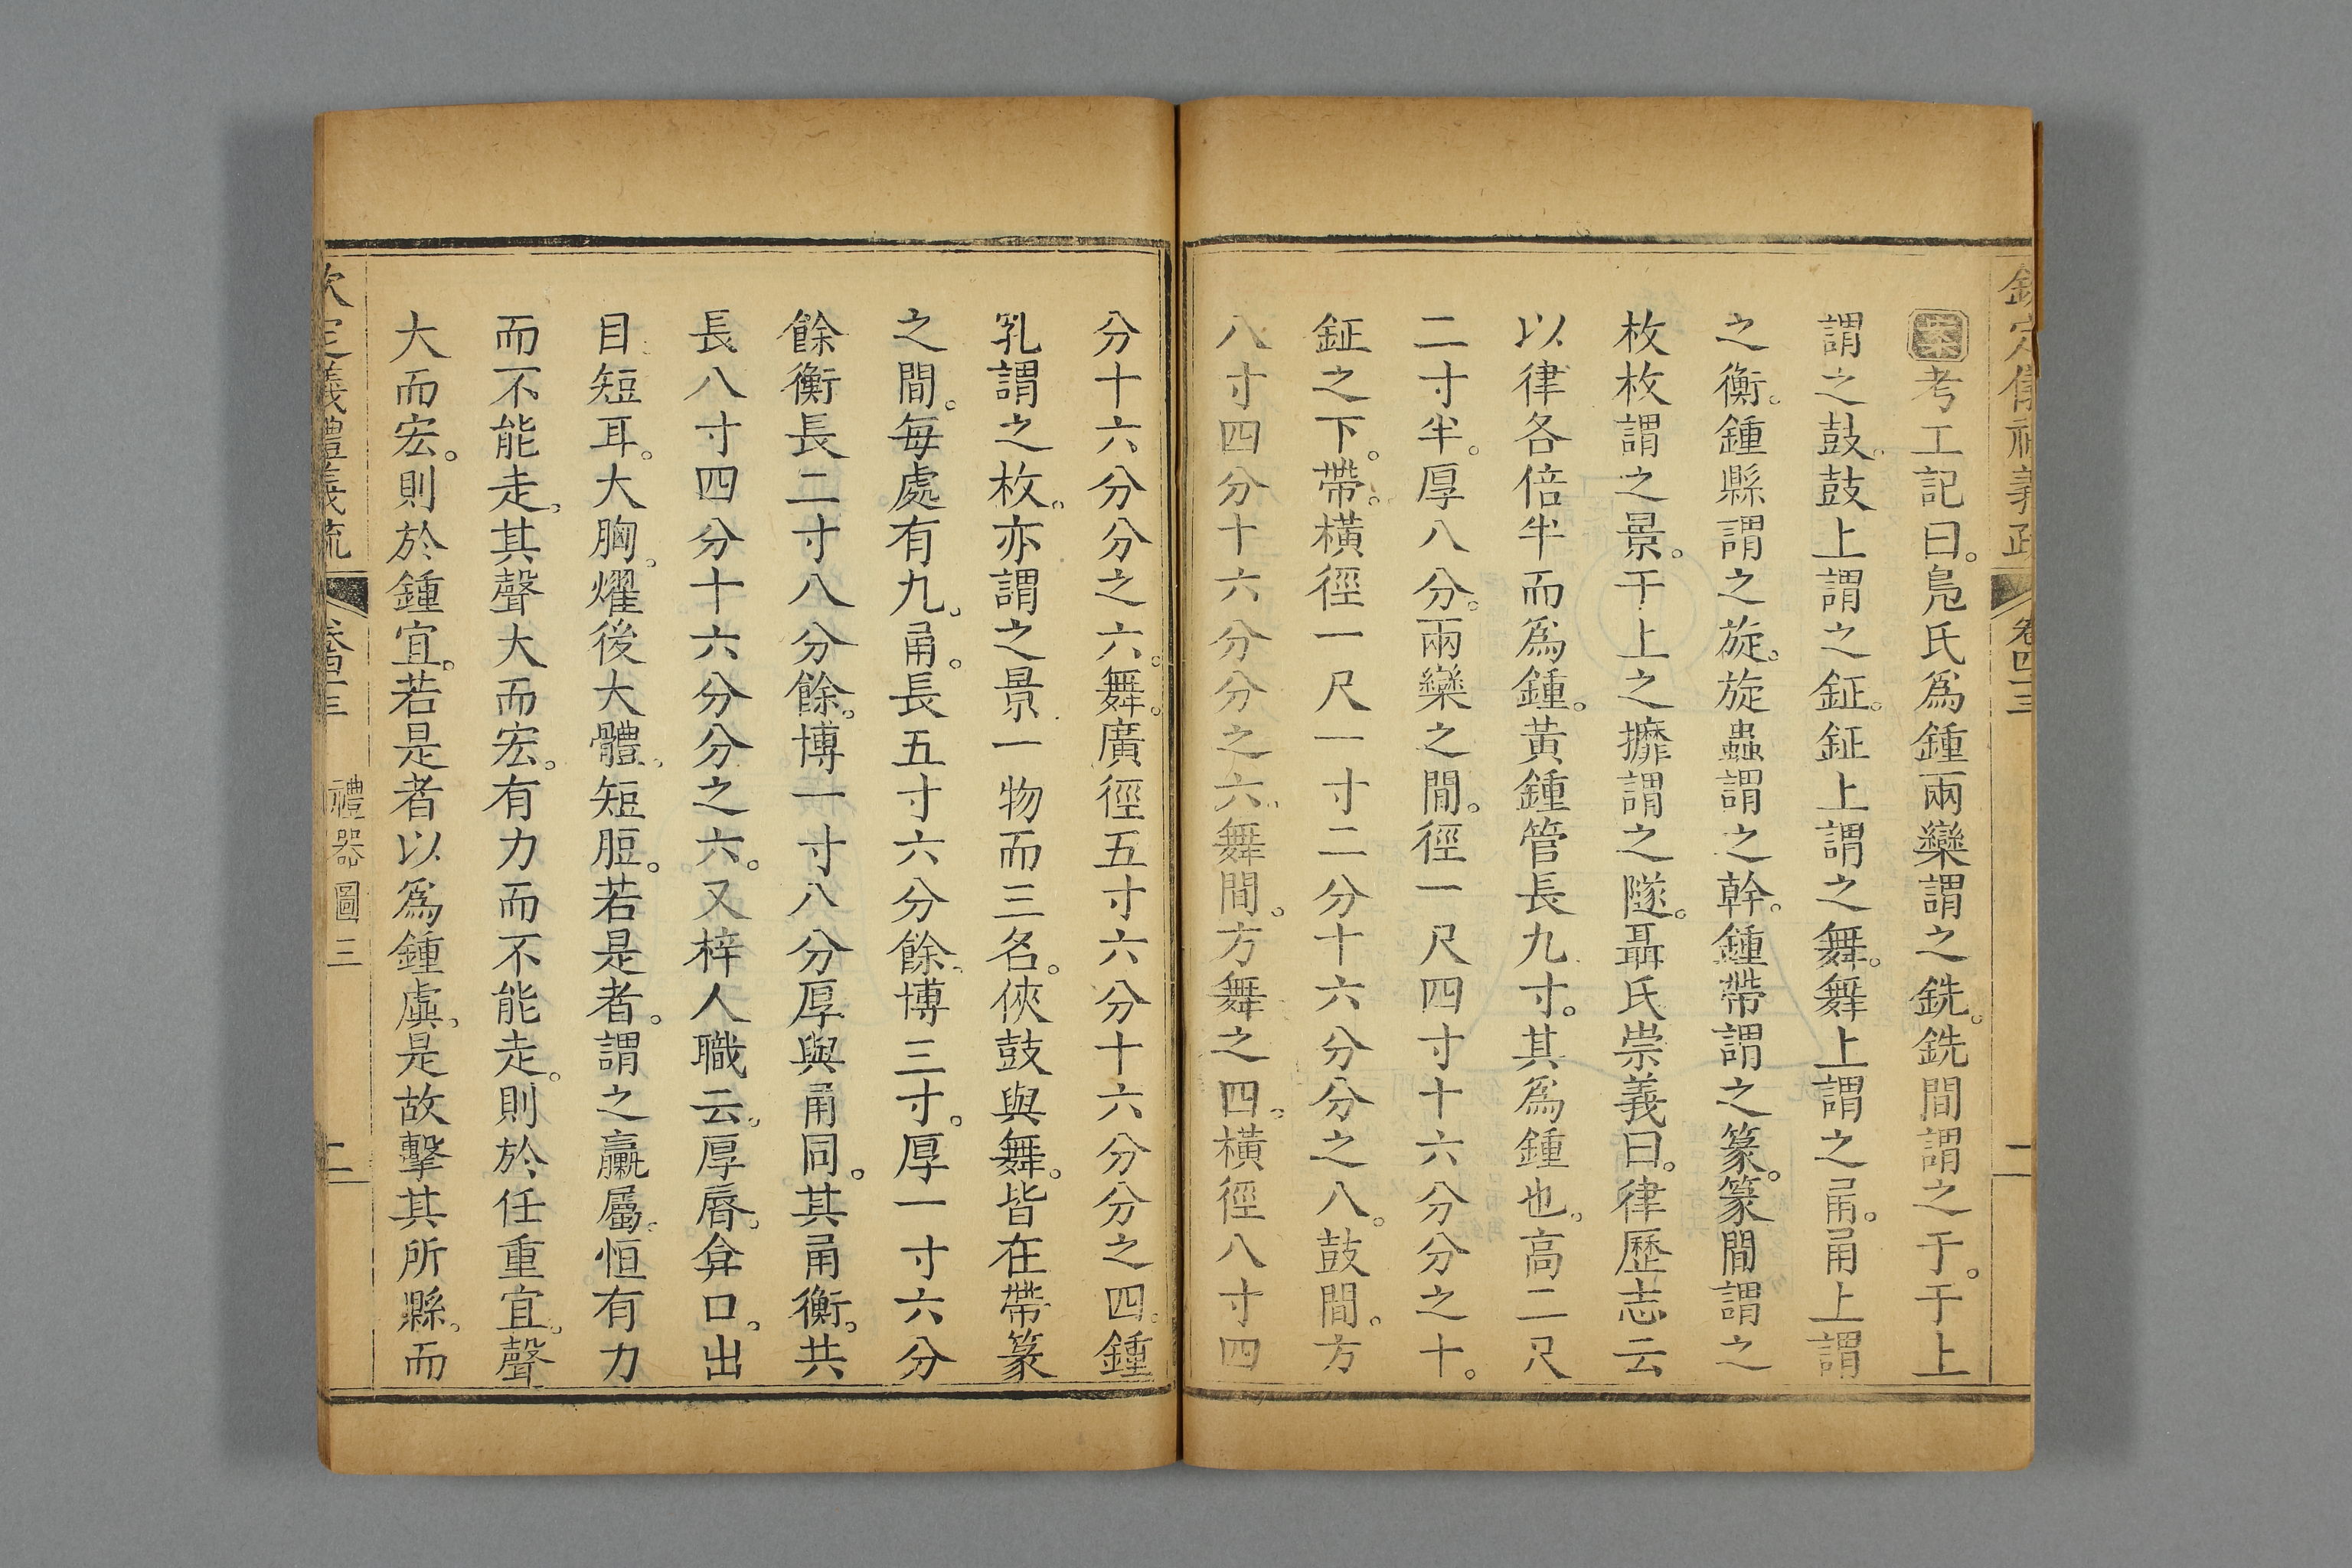 欽定儀禮義疏 卷四三 二
案考工記曰。鳧氏為鍾兩欒謂之銑。銑間謂之于。于上
謂之鼓。鼓上謂之鉦。鉦上謂之舞。舞上謂之甬。甬上謂
之衡。鍾縣謂之旋。旋蟲謂之幹。鍾帶謂之篆。篆間謂之
枚枚謂之景。于上之攠謂之隧。聶氏崇義曰。律歷志云
以律各倍半而為鍾。黃鍾管長九寸。其為鍾也。高二尺
二寸半。厚八分。兩欒之間。徑一尺四寸十六分分之十。
鉦之下。帶。橫徑一尺一寸二分十六分分之八。鼓間。方
八寸四分十六分分之六。舞間。方舞之四。橫徑八寸四
分十六分分之六。舞。廣徑五寸六分十六分分之四。鍾
乳謂之枚。亦謂之景一物而三名。俠鼓與舞。皆在帶篆
之間。每處有九。甬。長五寸六分餘。博三寸。厚一寸六分
餘衡長二寸八分餘。博一寸八分厚與甬同。其甬衡。共
長八寸四分十六分分之六。又梓人職云。厚脣。弇口。出
目短耳。大胸。燿後大體。短脰。若是者。謂之臝屬。恒有力
而不能走。其聲大而宏。有力而不能走。則於任重宜。聲
大而宏。則於鍾宜。若是者以為鍾虡。是故擊其所縣。而
欽定義禮義疏 卷四三 禮器圖三 二